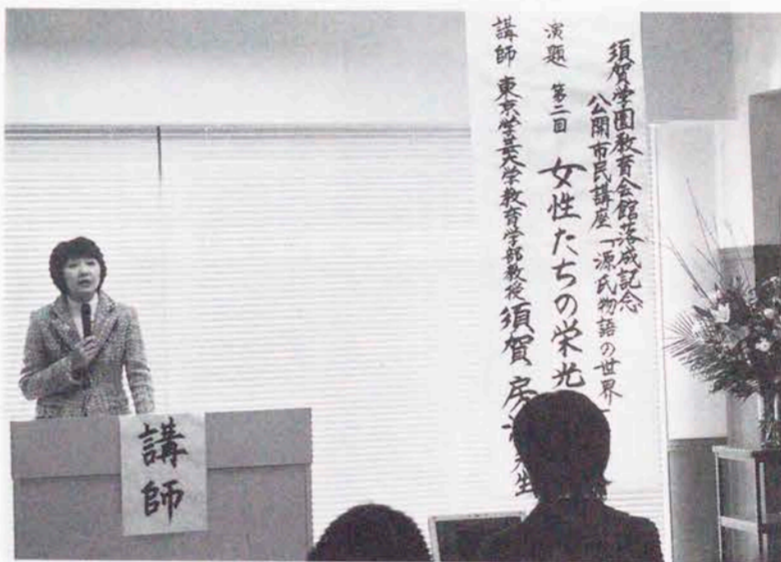 須賀学園教育会館落成記念
公開市民講座「源氏物語の世界
演題 第二回 女性たちの栄光
講師 東京学芸大学教育学部教授 須賀 房 生
講師